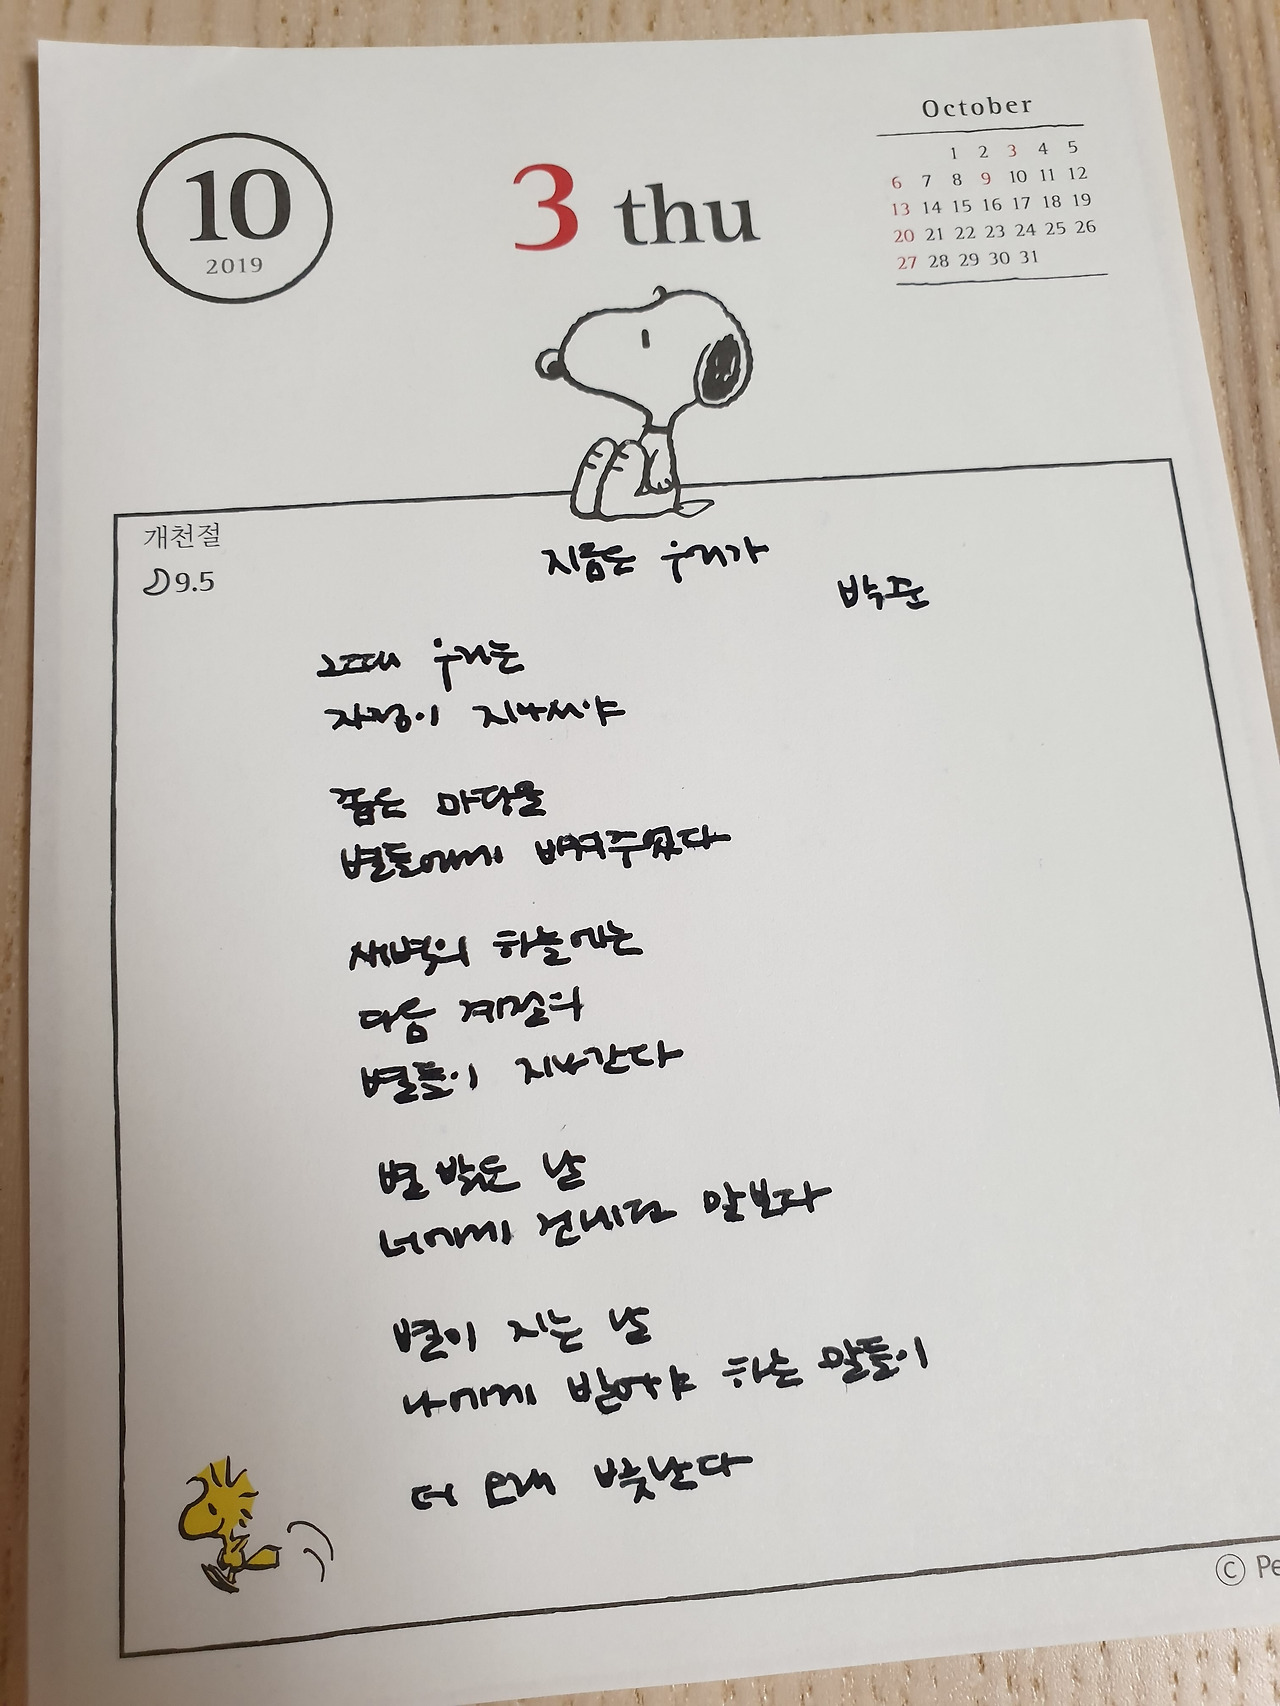 10
2019
3 thu
October
1 2 3 4 5
6 7 8 9 10 11 12
13 14 15 16 17 18 19
20 21 22 23 24 25 26
27 28 29 30 31
개천절
9.5
지금은 우리가
박준
그때 우리는
자정이 지나서야
좁은 마당을
별들에게 비켜주었다
새벽의 하늘에는
다음 계절의
별들이 지나간다
별 밝은 날
너에게 건네던 말보다
별이 지는 날
나에게 빌어야 하는 말들이
더 오래 빛난다
© Pe